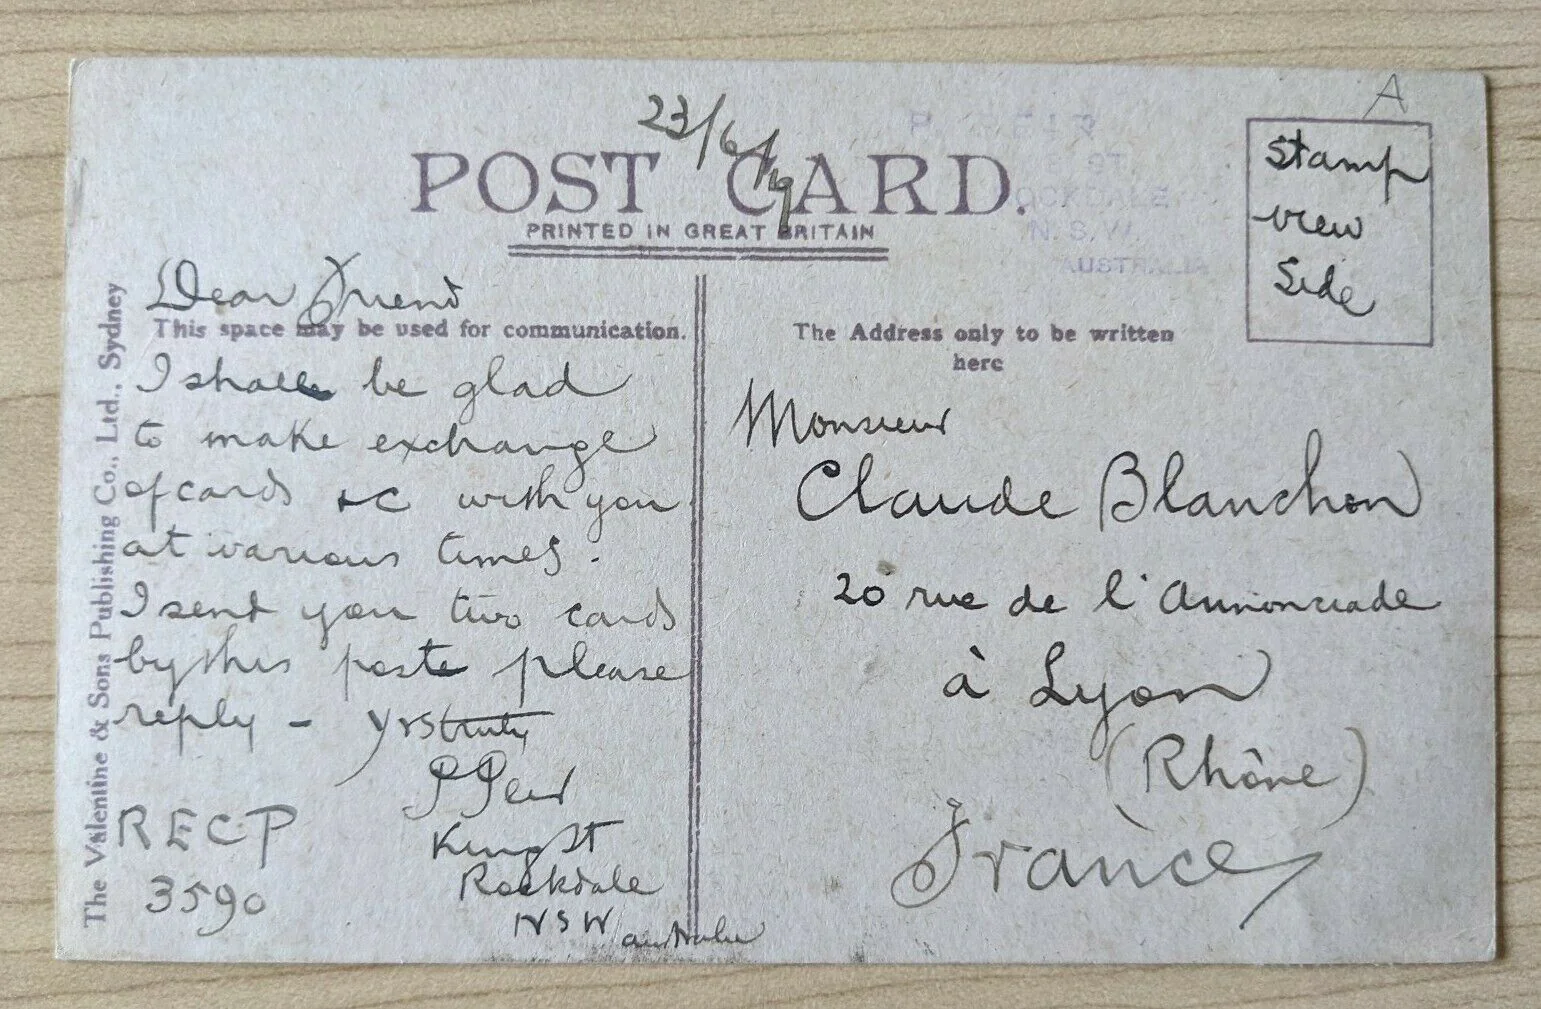 A
23/6/19
POST CARD.
PRINTED IN GREAT BRITAIN
P.
ROCKDALE
N.S.W.
AUSTRALIA
Stamp
view
Side
Dear Friend
This space may be used for communication.
I shall be glad
to make exchange
of cards &c with you
at various times.
I send you two cards
by this poste please
reply - yrs truly
P
King St
Rockdale
NSW australia
RECP
3590
The Valentine & Sons Publishing Co., Ltd., Sydney
The Address only to be written
here
Monsieur
Claude Blanchon
20 rue de l'Annonciade
à Lyon
(Rhône)
France